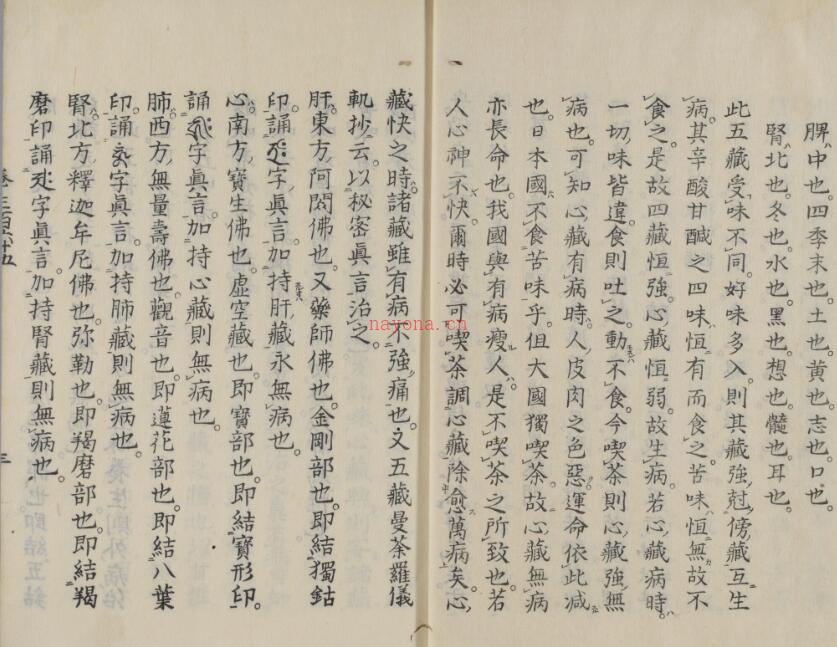 脾中也。四季末也。土也。黄也。志也。口也。
腎北也。冬也。水也。黒也。想也。髓也。耳也。
此五藏受味不同。好味多入則其藏強尅傍藏互生
病。其辛酸甘醎之四味恒有而食之。苦味恒無故不
食之。是故四藏恒強。心藏恒弱。故生病。若心藏病時。
一切味皆違。食則吐之。動不食。今喫茶則心藏強無
病也。可知心藏有病時人皮肉之色惡。運命依此減
也。日本國不食苦味乎。但大國獨喫茶。故心藏無病
亦長命也。我國與有病瘦人。是不喫茶之所致也。若
人心神不快。爾時必可喫茶調心藏除愈萬病矣。心
藏快之時。諸藏雖有病不強痛也。又五藏曼荼羅儀
軌抄云。以秘密真言治之。
肝東方阿閦佛也。又藥師佛也。金剛部也。即結獨鈷
印誦字真言。加持肝藏永無病也。
心南方寶生佛也。虛空藏也。即寶部也。即結寶形印。
誦字真言。加持心藏則無病也。
肺西方無量壽佛也。觀音也。即蓮花部也。即結八葉
印。誦字真言。加持肺藏則無病也。
腎北方釋迦牟尼佛也。弥勒也。即羯磨部也。即結羯
磨印誦字真言。加持腎藏則無病也。
nayona.cn